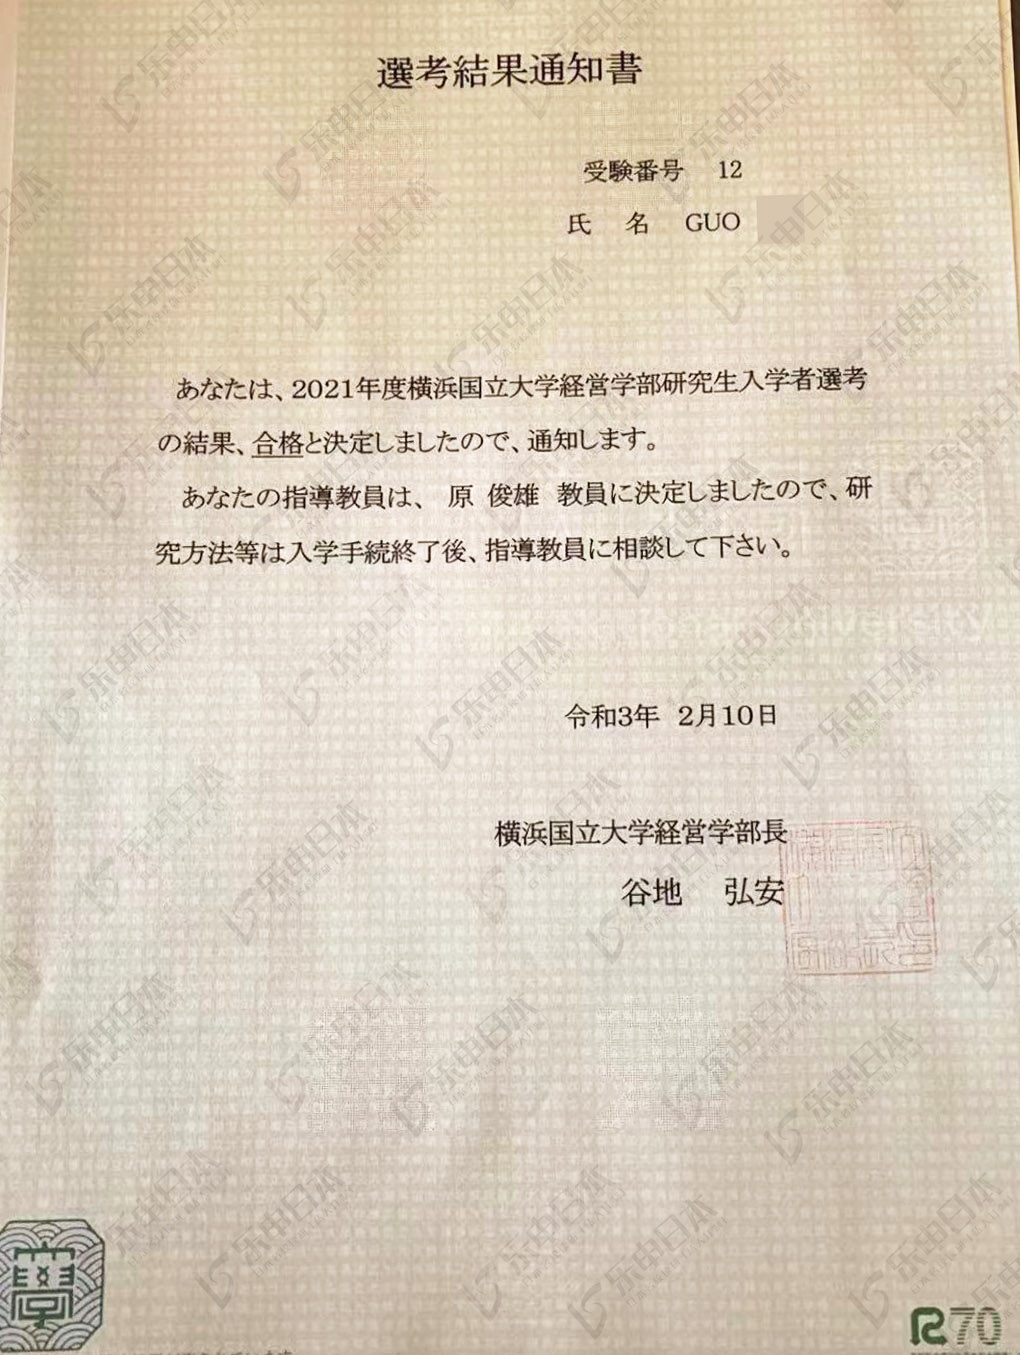 選考結果通知書
受験番号 12
氏 名 GUO
あなたは、2021年度横浜国立大学経営学部研究生入学者選考
の結果、合格と決定しましたので、通知します。
あなたの指導教員は、 原 俊雄 教員に決定しましたので、研
究方法等は入学手続終了後、指導教員に相談して下さい。
University
令和3年 2月10日
横浜国立大学経営学部長
谷地 弘安
學
R70
乐申日本